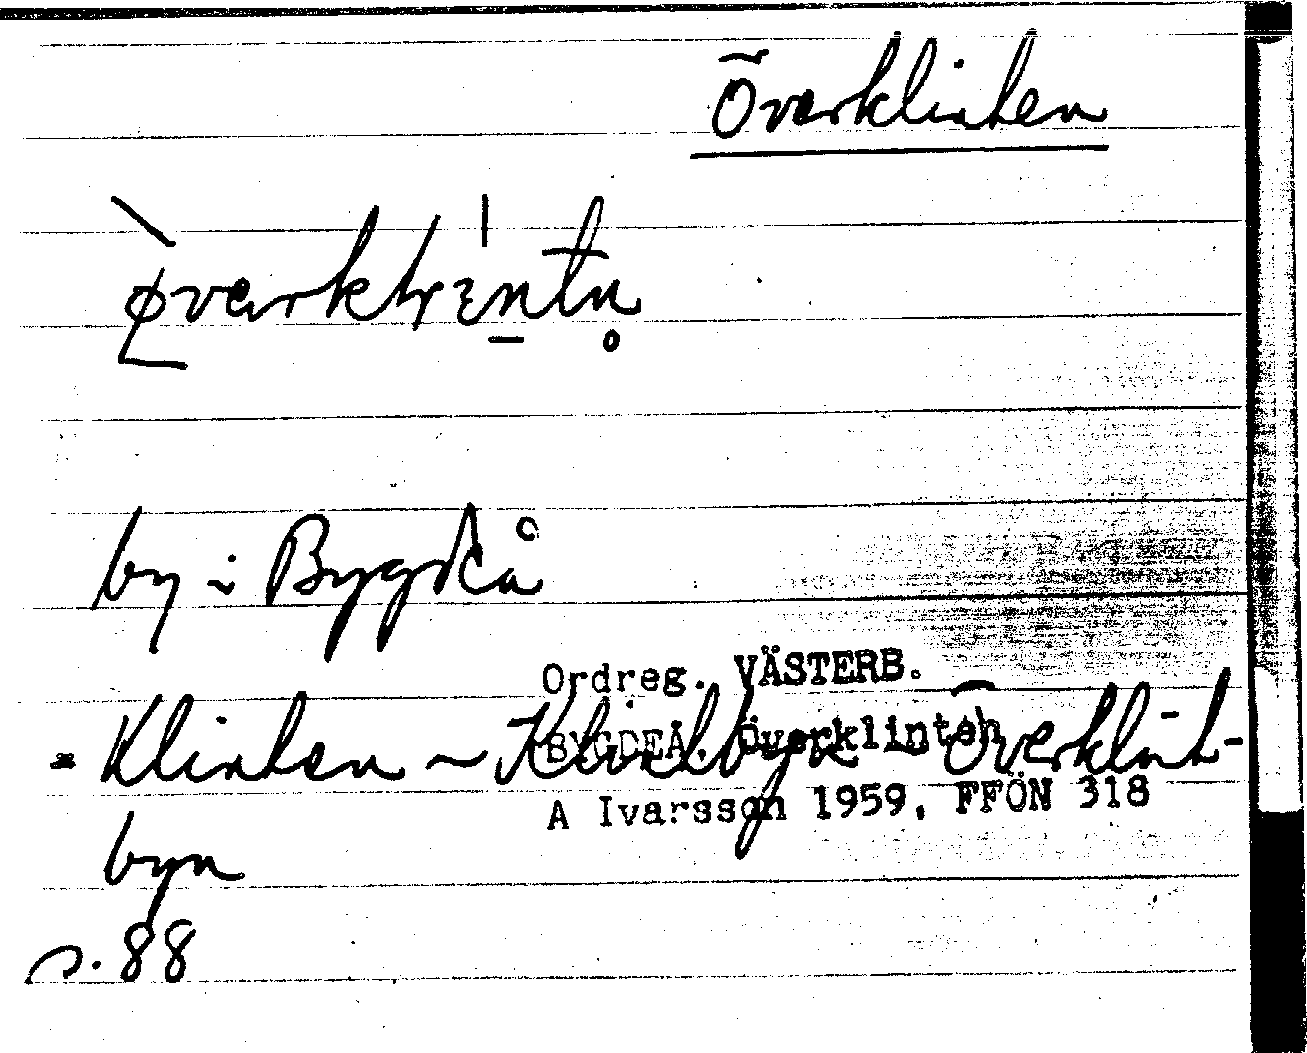 Överklinten
by i Bygdeå
Ordreg. VÄSTERB.
= Klinten ~ Klintbyn Överklint-
BYGDEÅ. Överklinten
A Ivarsson 1959, FFÖN 318
byn
s. 88